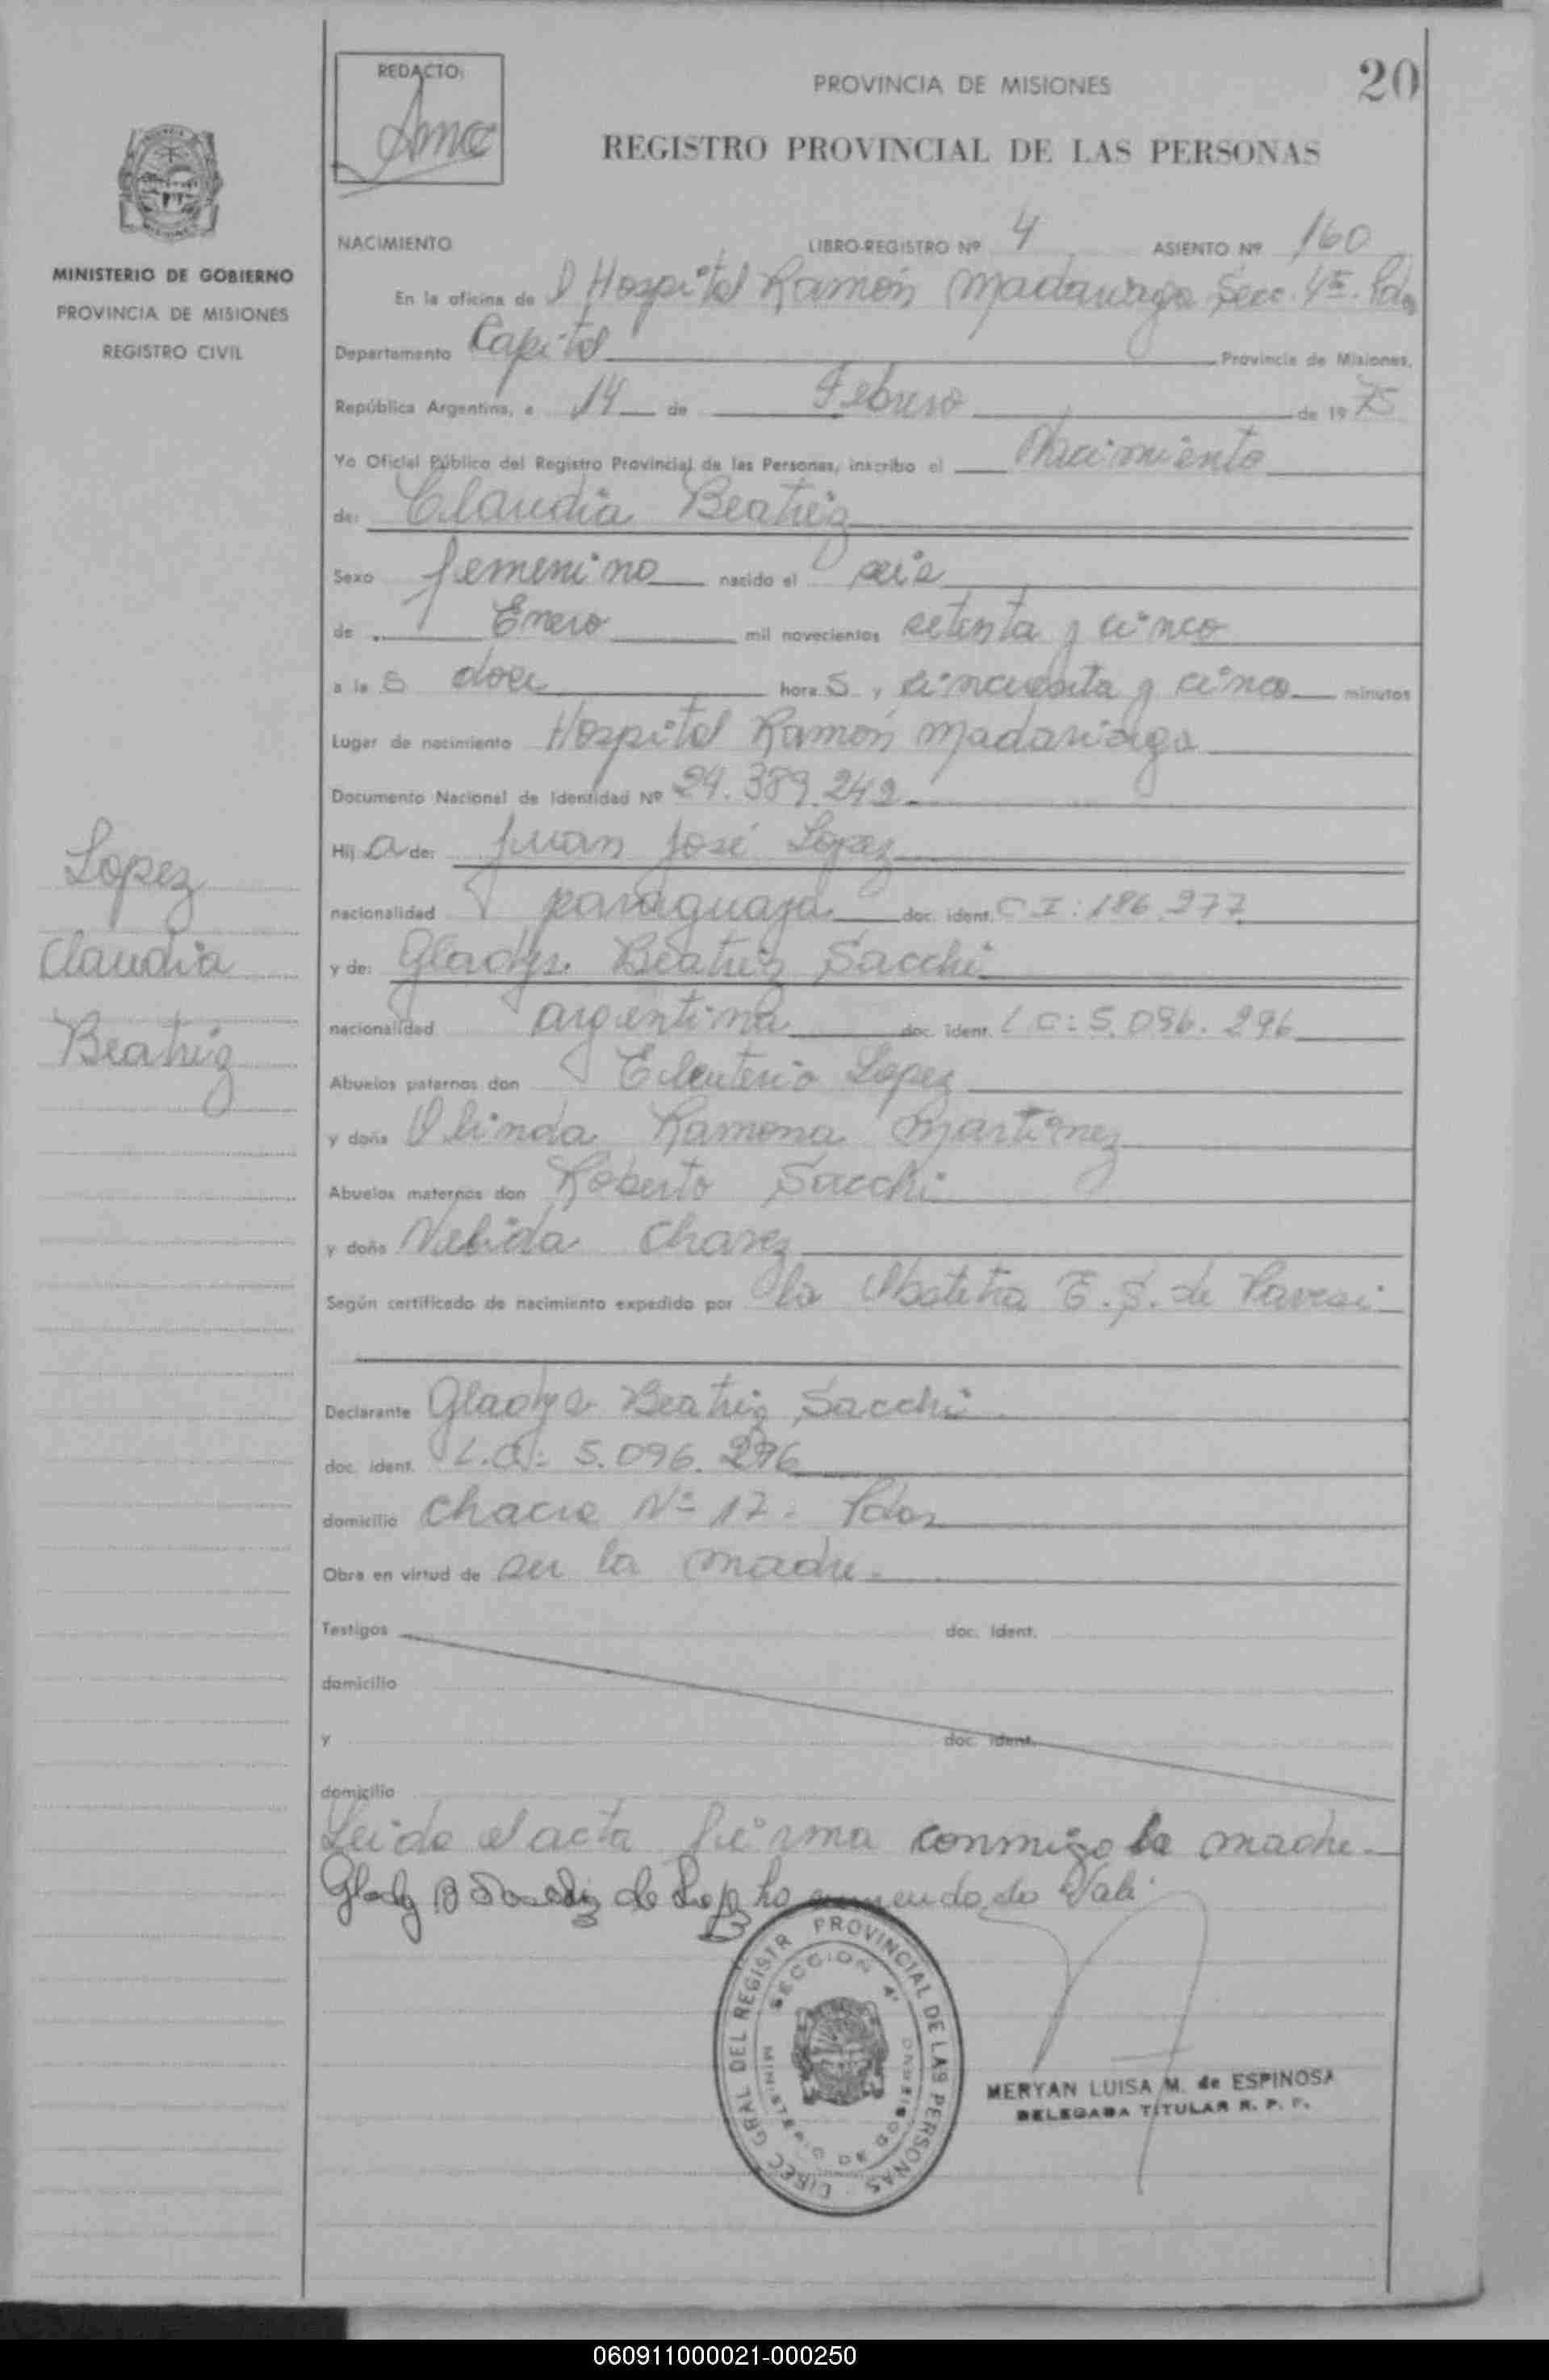 REDACTO:
PROVINCIA DE MISIONES
20
REGISTRO PROVINCIAL DE LAS PERSONAS
MINISTERIO DE GOBIERNO
PROVINCIA DE MISIONES
REGISTRO CIVIL
NACIMIENTO LIBRO-REGISTRO Nº 4 ASIENTO Nº 160
En la oficina de l Hospital Ramón Madariaga Secc. 4ª. Pdas
Departamento Capital Provincia de Misiones,
República Argentina, a 14 de Febrero de 1975
Yo Oficial Público del Registro Provincial de las Personas, inscribo el Nacimiento
de: Claudia Beatriz
Sexo femenino nacido el seis
de Enero mil novecientos setenta y cinco
a las doce horas, cincuenta y cinco minutos
Lugar de nacimiento Hospital Ramón Madariaga
Documento Nacional de Identidad Nº 24.389.242
Hija de: Juan José Lopez
nacionalidad paraguaya doc. ident. C.I: 186.277
y de: Gladys Beatriz Sacchi
nacionalidad argentina doc. ident. L C: 5.096.296
Abuelos paternos don Eleuterio Lopez
y doña Olinda Ramona Martinez
Abuelos maternos don Roberto Sacchi
y doña Nélida Chavez
Según certificado de nacimiento expedido por la Obstetra E. S. de Pavesi
Declarante Gladys Beatriz Sacchi
doc. ident. L.C: 5.096.296
domicilio Chacra Nº 17. Pdas
Obra en virtud de ser la madre.
Testigos doc. ident.
domicilio
y doc. ident.
domicilio
Leida el acta firma conmigo la madre.
Lopez
Claudia
Beatriz
DIREC GRAL DEL REGISTR PROVINCIAL DE LAS PERSONAS
SECCION 4ª
MINISTERIO DE GOBIERNO
MERYAN LUISA M. de ESPINOSA
DELEGADA TITULAR R. P. P.
060911000021-000250